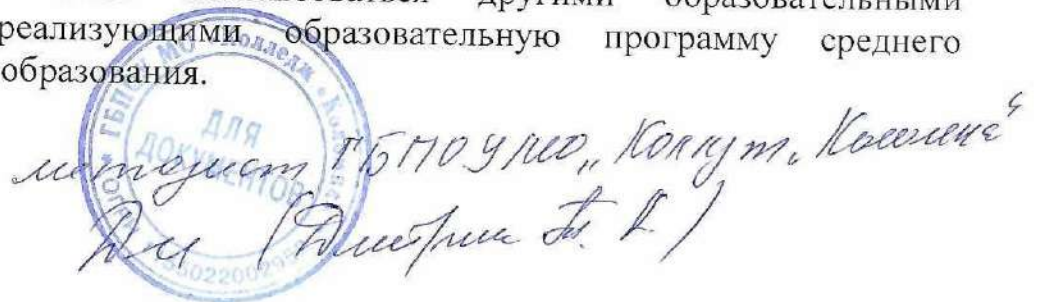 другими образовательными
реализующими образовательную программу среднего
образования.
ГБПОУ МО "Колледж "Коломна"
ДЛЯ
ДОКУМЕНТОВ
методист ГБПОУ МО „Колледж „Коломна"
(Дмитрик